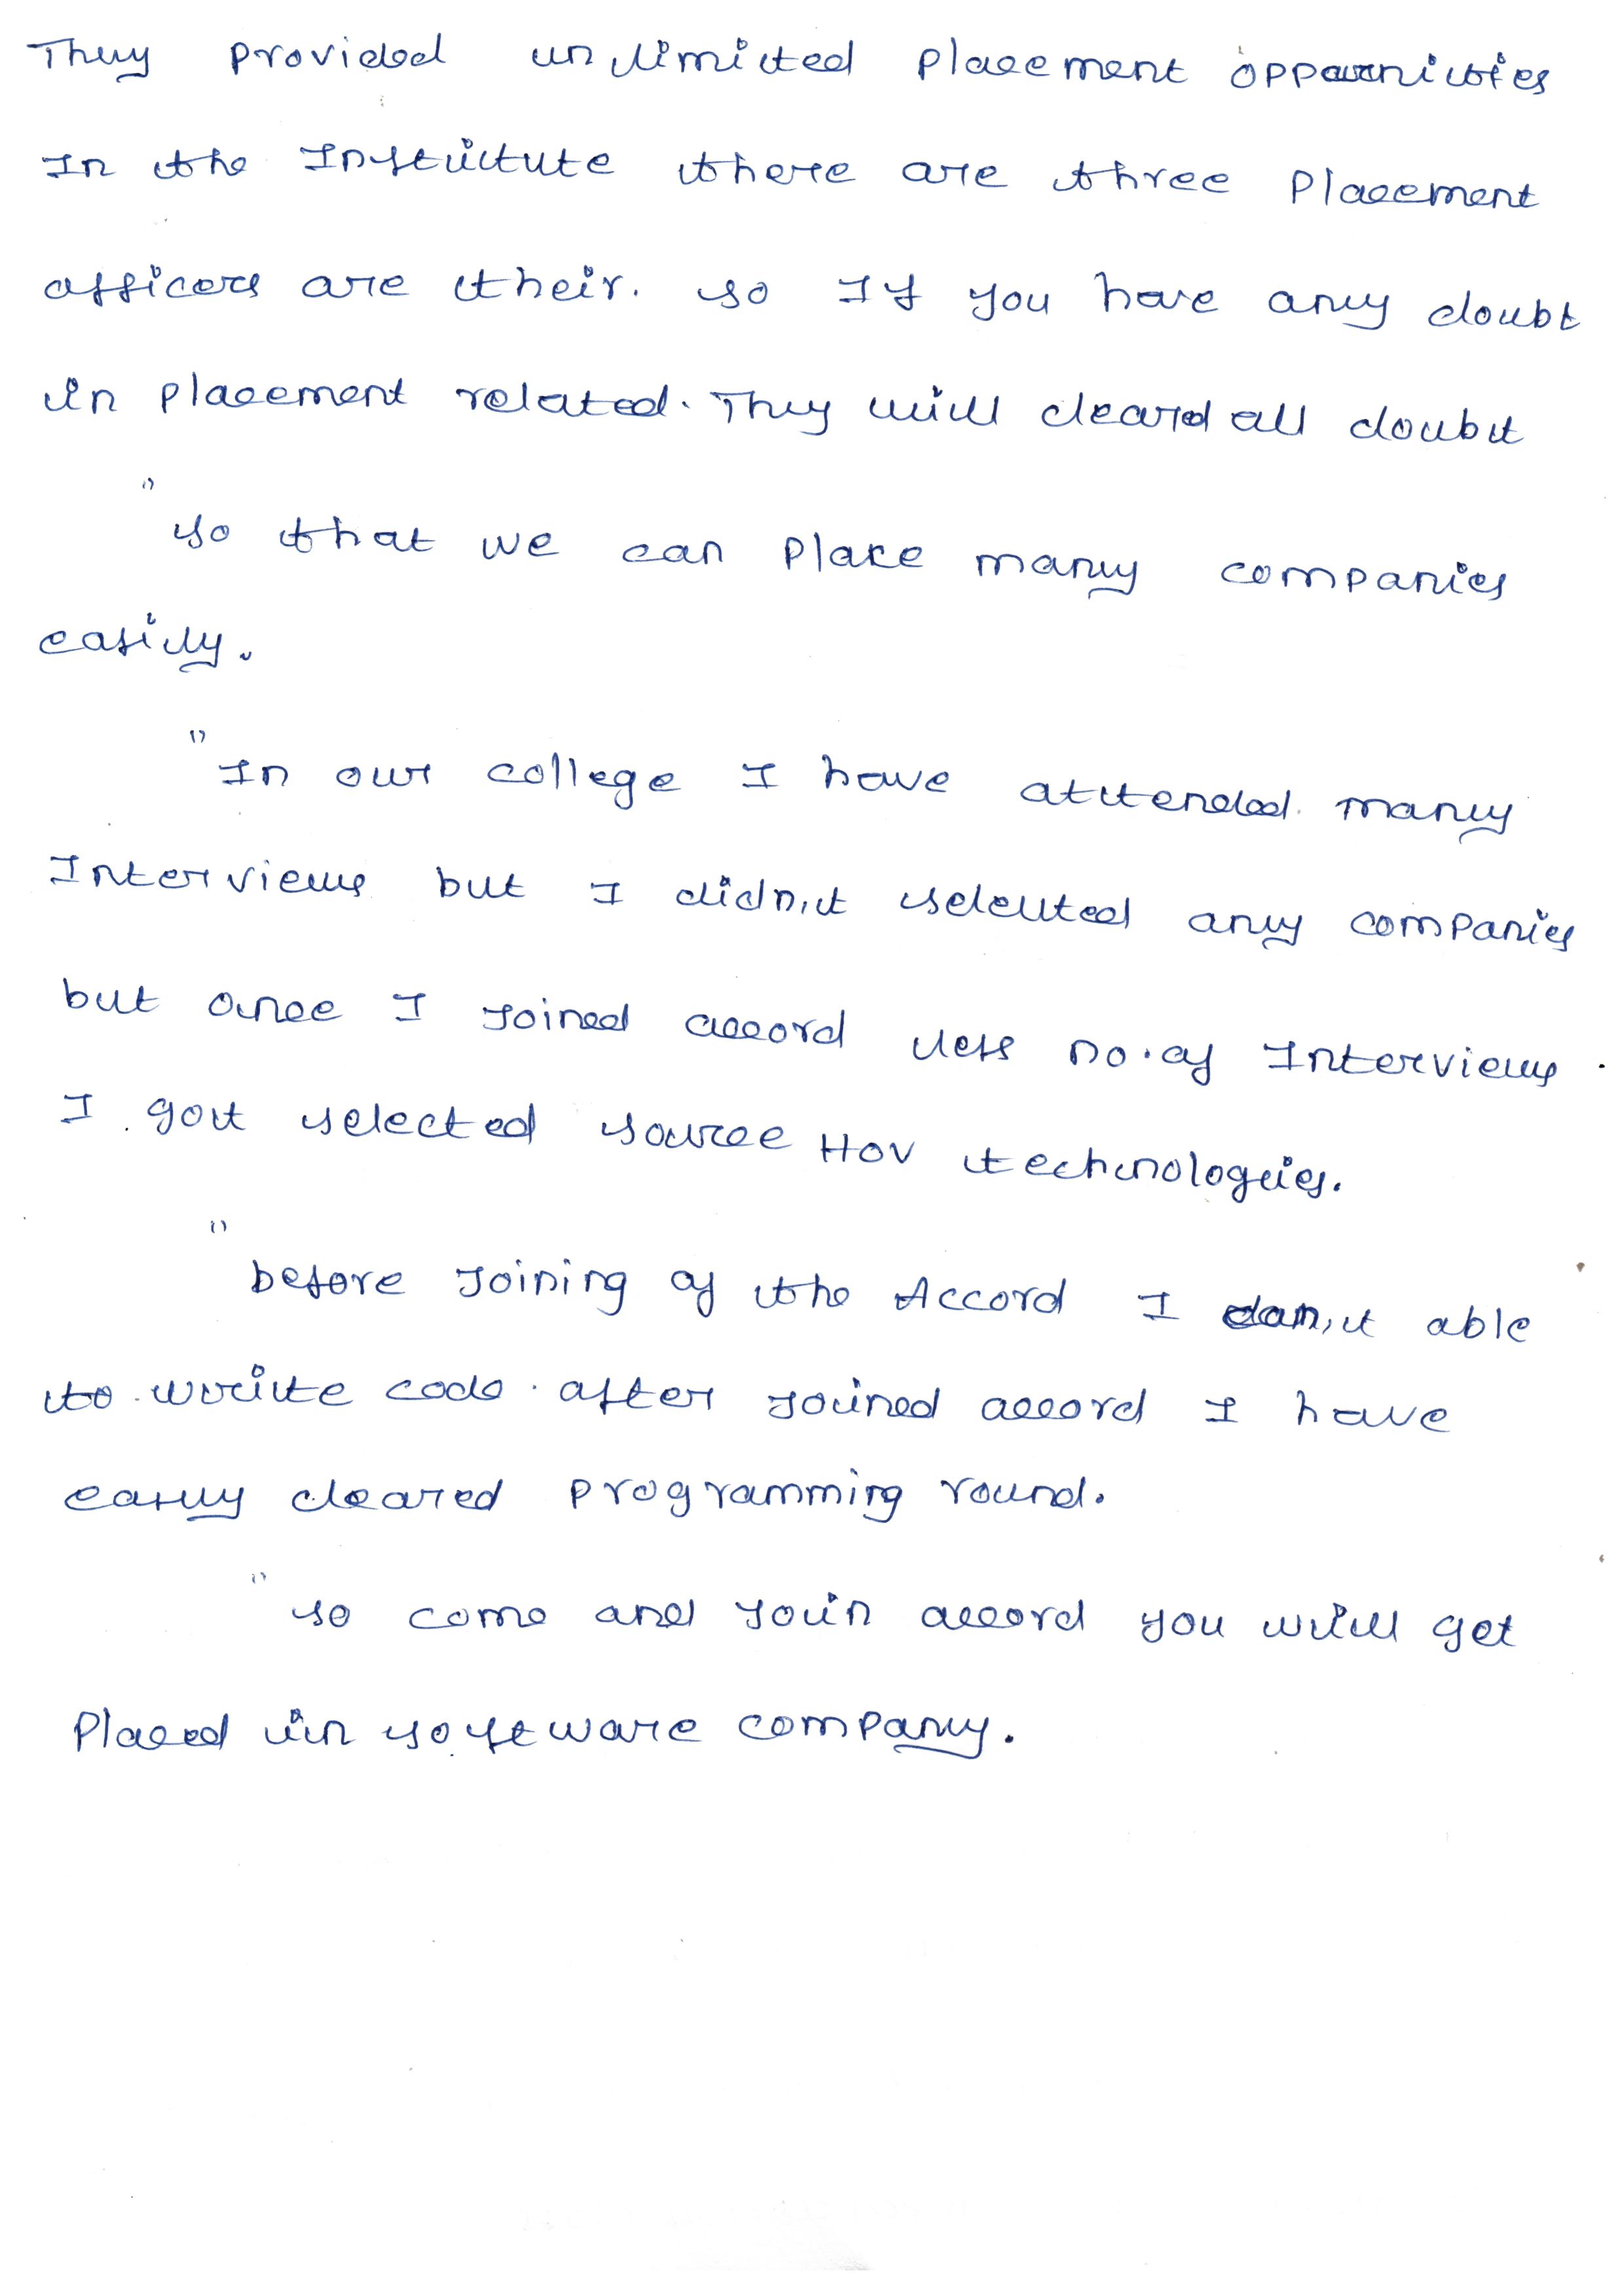 They provided unlimited placement oppournities
In the Institute there are three Placement
officers are their. so If you have any doubt
in placement related. They will cleard all doubt
"so that we can place many companies
easily.
"In our college I have attended many
Interviews but I didn't selected any companies
but once I Joined accord less no. of Interviews.
I got selected source HOV technologies.
"before Joining of the Accord I can't able
to write code. after Joined accord I have
easily cleared programming round.
"so come and Join accord you will get
Placed in software company.